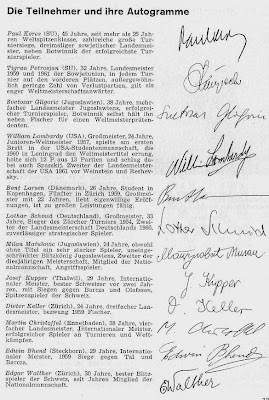 Die Teilnehmer und ihre Autogramme
Paul Keres (SU), 45 Jahre, seit mehr als 25 Jahren
Weltspitzenklasse, zahlreiche große Turniersiegen,
dreimaliger sowjetischer Landesmeister,
neben Botwinnik der erfolgreichste Turnierspieler.
Tigran Petrosjan (SU), 32 Jahre, Landesmeister
1959 und 1961 der Sowjetunion, in jedem Turnier
auf den vorderen Plätzen, außergewöhnlich
geringe Zahl von Verlustpartien, gilt als
enger Weltmeisterschaftsanwärter.
Svetozar Gligoric (Jugoslawien), 38 Jahre, mehrfacher
Landesmeister Jugoslawiens, erfolgreicher
Turnierspieler, Botwinnik selbst hält ihn
neben Fischer für einen Weltmeisterprätendenten.
William Lombardy (USA), Großmeister, 24 Jahre,
Junioren-Weltmeister 1957, spielte am ersten
Brett in der USA-Studentenmannschaft, die
1960 in Leningrad den Weltmeistertitel errang,
holte sich 12 P. aus 13 Partien und schlug dabei
auch Spasskij. Zweiter der Landesmeisterschaft
der USA 1961 vor Weinstein und Reshevsky.
Bent Larsen (Dänemark), 26 Jahre, Student in
Kopenhagen, Fünfter in Zürich 1959, Großmeister
mit 22 Jahren, liebt eigenwillige Eröffnungen,
ist zu großen Leistungen fähig.
Lothar Schmid (Deutschland), Großmeister, 33
Jahre, Sieger des Zürcher Turniers 1954, Zweiter
der Landesmeisterschaft Deutschlands 1960,
zuverlässiger strategischer Spieler.
Milan Matulovic (Jugoslawien), 24 Jahre, obwohl
ohne Titel ein sehr starker Spieler, uneingeschränkter
Blitzkönig Jugoslawiens, Zweiter der
diesjährigen Meisterschaft, Mitglied der Nationalmannschaft,
Angriffsspieler.
Josef Kupper (Thalwil), 29 Jahre, Internationaler
Meister, bester Schweizer vor zwei Jahren,
mit Siegen gegen Barcza und Olafsson,
Spitzenspieler der Schweiz.
Dieter Keller (Zürich), 24 Jahre, dreifacher Landesmeister,
bezwang 1959 Fischer.
Martin Christoffel (Ennetbaden), 38 Jahre, vierfacher
Landesmeister, Internationaler Meister,
erfolgreicher Spieler an Turnieren und Wettkämpfen.
Edwin Bhend (Steckborn), 29 Jahre, Internationaler
Meister, 1959 Sieg gegen Tal und
Barcza.
Edgar Walther (Zürich), 30 Jahre, bester Blitzspieler
der Schweiz, seit Jahren Mitglied der
Nationalmannschaft.
Lothar Schmid
J. Kupper
D. Keller
M. Christoffel
Edwin Bhend
E Walther